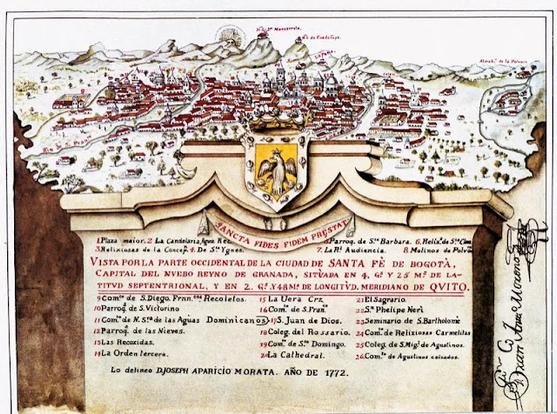 N. S.ª Monserrate.
N. S. de Guadalupe.
Almah.n de la Polvora
SANCTA FIDES FIDEM PRESTAT
1.Plaza maior. 2 La Candelaria Agus. Rec.
5.Parroq. de S.ta Barbara. 6. Relig.s de S.ta Clara
3.Religiosas de la Concep. 4.De S.ta Ynes.
7. La Rl Audiencia. 8 Molinos de Polvora
VISTA POR LA PARTE OCCIDENTAL DE LA CIUDAD DE SANTA FÈ DE BOGOTÀ,
CAPITAL DEL NVEBO REYNO DE GRANADA, SITUADA EN 4, G.s Y 25 M.s DE LA-
TITVD SEPTENTRIONAL, Y EN 2. G.s Y 48 M.s DE LONGITVD. MERIDIANO DE QVITO.
9 Com.to de S. Diego. Frnn.nos Recoletos.
10 Parroq. de S. Victorino
11 Com.to de N. S.ra de las Aguas Dominicanos
12 Parroq. de las Nieves.
13 Las Recoxidas.
14 La Orden Tercera.
15 La Vera Crz.
16 Com.to de S. Fran.co
17 S. Juan de Dios.
18 Coleg. del Rossario.
19 Com.to de S.to Domingo.
20 La Cathedral.
21 El Sagrario
22 S.n Phelipe Neri
23 Seminario de S. Bartholomè
24 Com.to de Religiosas Carmelitas
25 Coleg. de S. Mig.l de Agustinos.
26 Com.to de Agustinos calzados.
Lo delineo D. JOSEPH APARICIO MORATA. AÑO DE 1772.